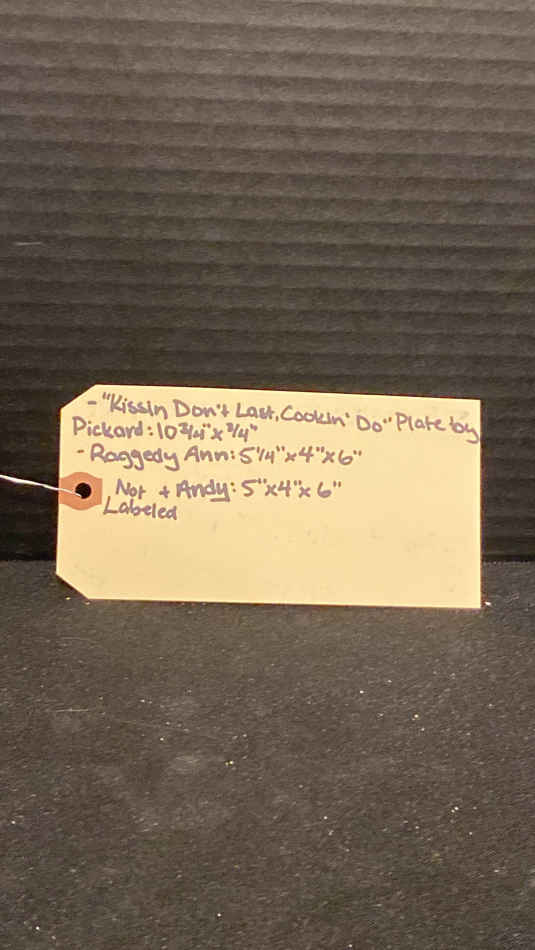 - "Kissin Don't Last, Cookin' Do" Plate by
Pickard: 10 3/4" x 3/4"
- Raggedy Ann: 5 1/4" x 4" x 6"
Not + Andy: 5" x 4" x 6"
Labeled